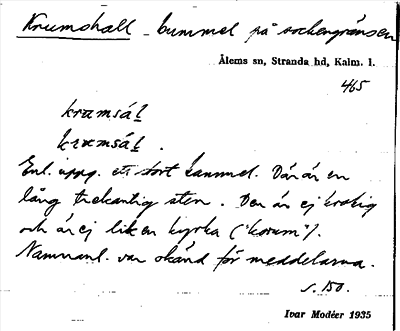 Krumshall _ bummel på sockengränsen
Ålems sn, Stranda hd, Kalm. l.
465
krumsál
krumsál.
Enl. uppg. ett stort bummel. Där är en
lång trekantig sten. Den är ej krokig
och är ej lik en kyrka ("korum").
Namnanl. var okänd för meddelarna.
s. 150.
Ivar Modéer 1935